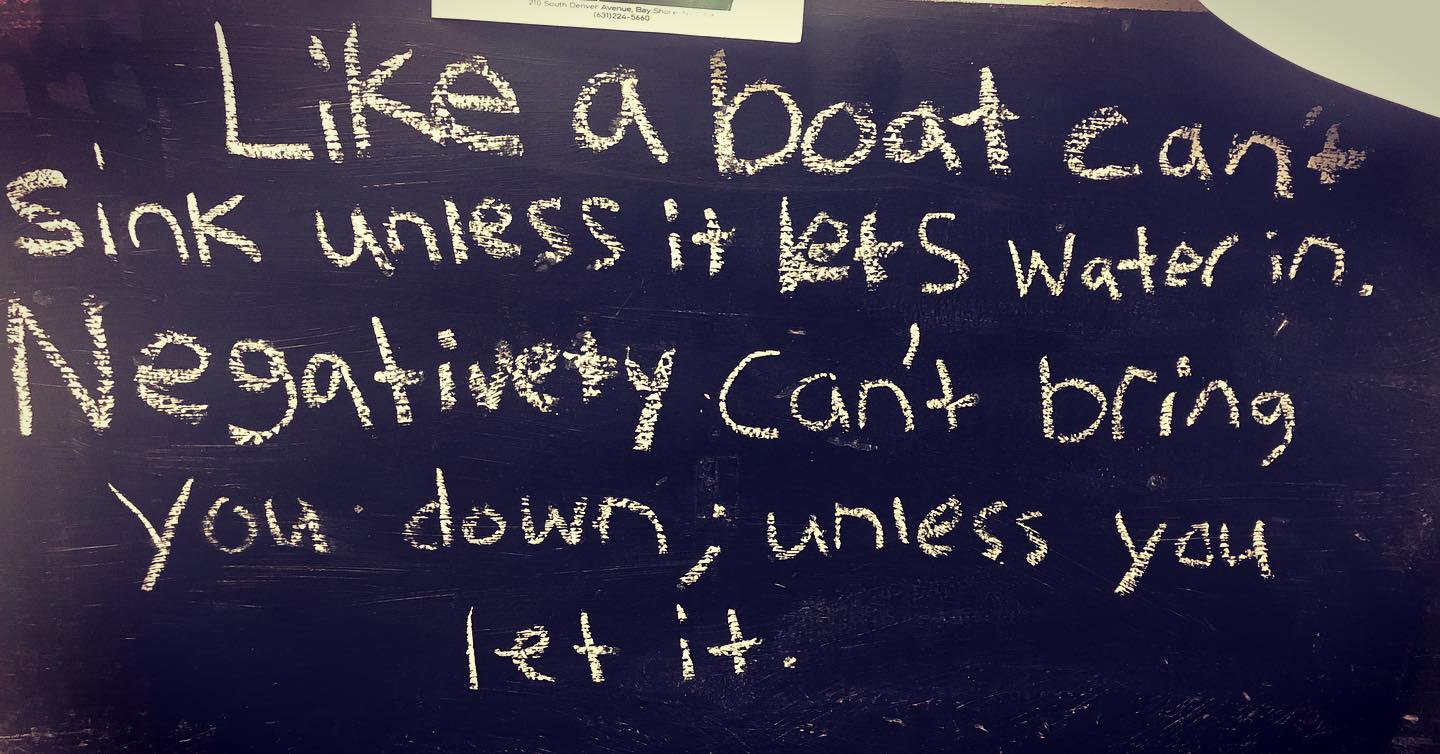 210 South Denver Avenue, Bay Shore
(631)224-5660
Like a boat can't
sink unless it lets water in.
Negativety can't bring
you down; unless you
let it.